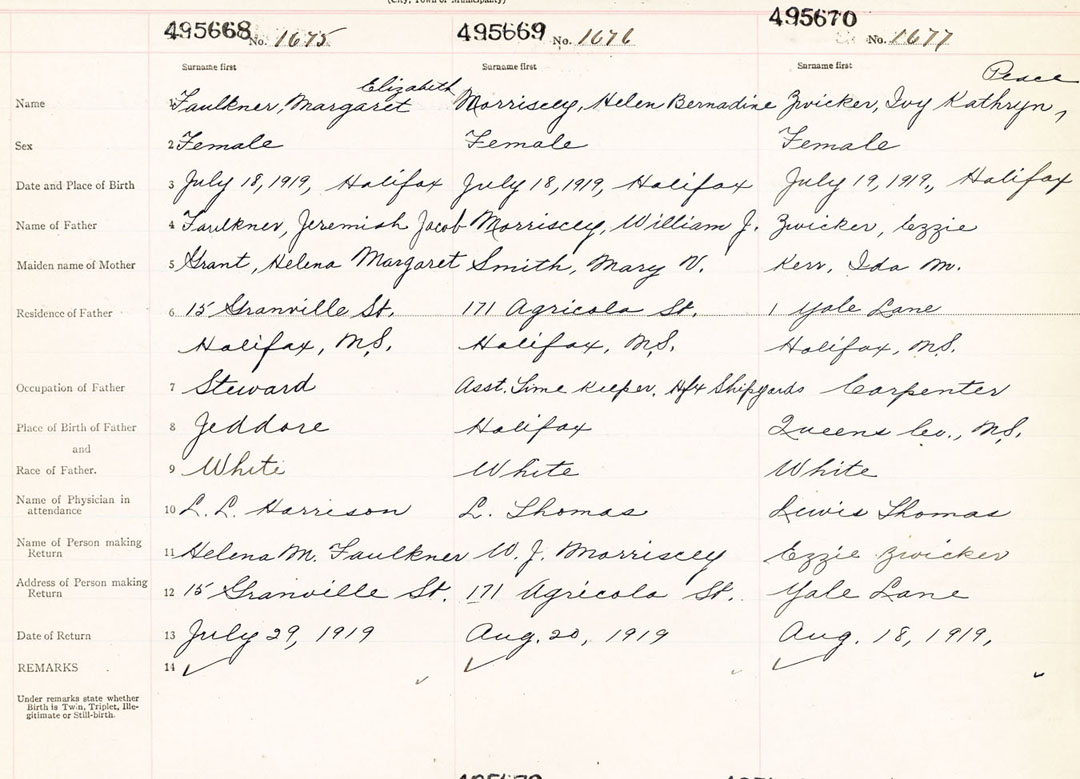 (City, Town or Municipality)
495668 No. 1675 495669 No. 1676 495670 No. 1677
Surname first Surname first Surname first
Elizabeth Peace
Name 1 Faulkner, Margaret Morriscey, Helen Bernadine Zwicker, Ivy Kathryn,
Sex 2 Female Female Female
Date and Place of Birth 3 July 18, 1919, Halifax July 18, 1919, Halifax July 19, 1919, Halifax
Name of Father 4 Faulkner, Jeremiah Jacob Morriscey, William J. Zwicker, Ezzie
Maiden name of Mother 5 Grant, Helena Margaret Smith, Mary V. Kerr, Ida M.
Residence of Father 6 15 Granville St. 171 Agricola St. 1 Yale Lane
Halifax, N.S. Halifax, N.S. Halifax, N.S.
Occupation of Father 7 Steward Asst. Time Keeper, Hfx Shipyards Carpenter
Place of Birth of Father 8 Jeddore Halifax Queens Co., N.S.
and
Race of Father. 9 White White White
Name of Physician in
attendance 10 L. L. Harrison L. Thomas Lewis Thomas
Name of Person making
Return 11 Helena M. Faulkner W. J. Morriscey Ezzie Zwicker
Address of Person making
Return 12 15 Granville St. 171 Agricola St. Yale Lane
Date of Return 13 July 29, 1919 Aug. 20, 1919 Aug. 18, 1919,
REMARKS 14
Under remarks state whether
Birth is Twin, Triplet, Ille-
gitimate or Still-birth.